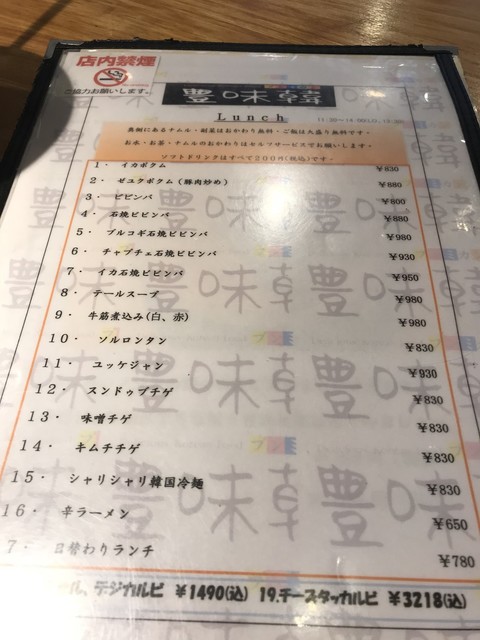 店内禁煙
ご協力お願いします。
豊味韓
Lunch
裏側にあるナムル・副菜はおかわり無料・ご飯は大盛り無料です。
お水・お茶・ナムルのおかわりはセルフサービスでお願いします。
ソフトドリンクはすべて200円(税込)です。
1・ イカポクム ¥830
2・ ゼユクポクム(豚肉炒め) ¥880
3・ ビビンバ ¥800
4・ 石焼ビビンバ ¥880
5・ プルコギ石焼ビビンバ ¥980
6・ チャプチェ石焼ビビンバ ¥930
7・ イカ石焼ビビンバ ¥950
8・ テールスープ ¥980
9・ 牛筋煮込み(白、赤) ¥980
10・ ソルロンタン ¥830
11・ ユッケジャン ¥930
12・ スンドゥブチゲ ¥830
13・ 味噌チゲ ¥830
14・ キムチチゲ ¥830
15・ シャリシャリ韓国冷麺 ¥830
16・ 辛ラーメン ¥650
7・ 日替わりランチ ¥780
ル、デジカルビ ¥1490(込) 19.チーズタッカルビ ¥3218(込)